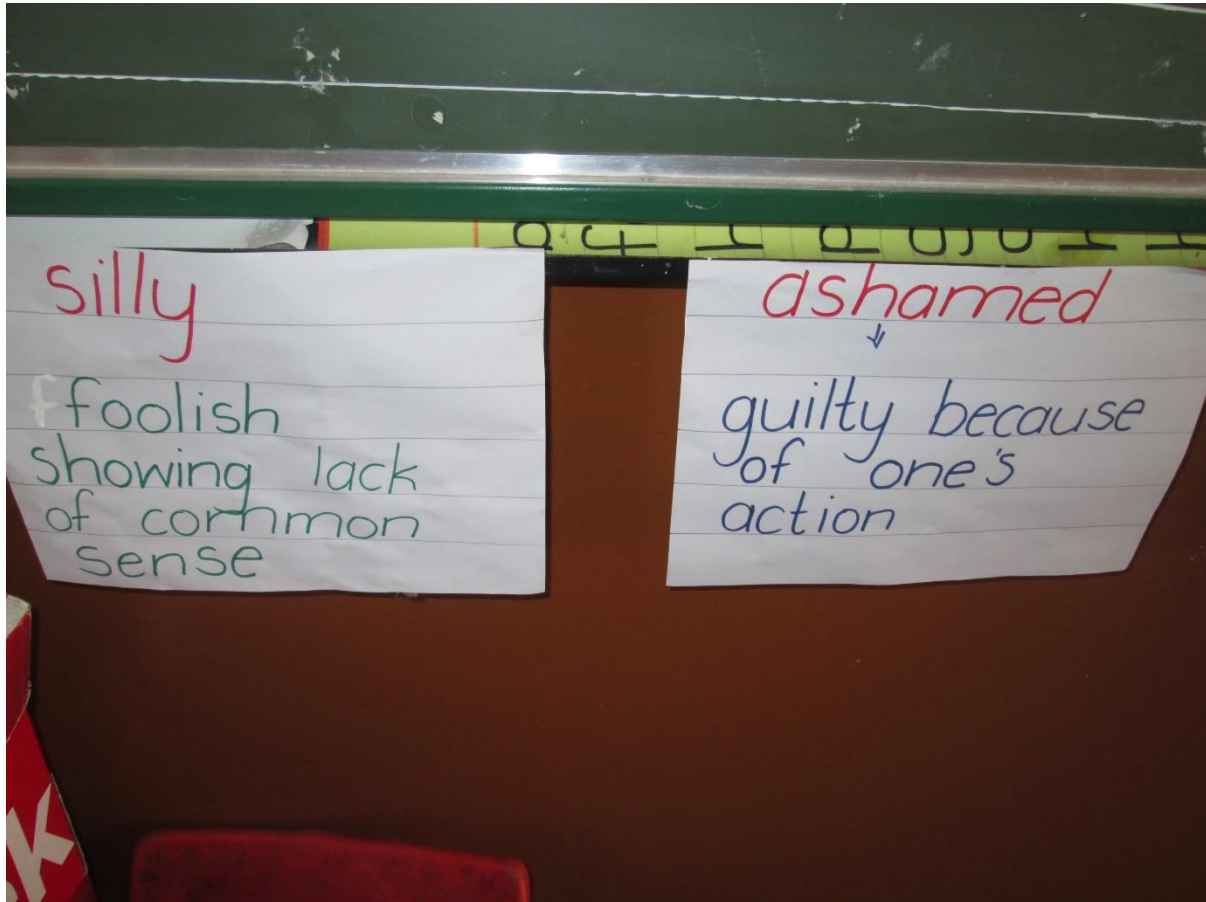 silly
foolish
showing lack
of common
sense
ashamed
guilty because
of one's
action